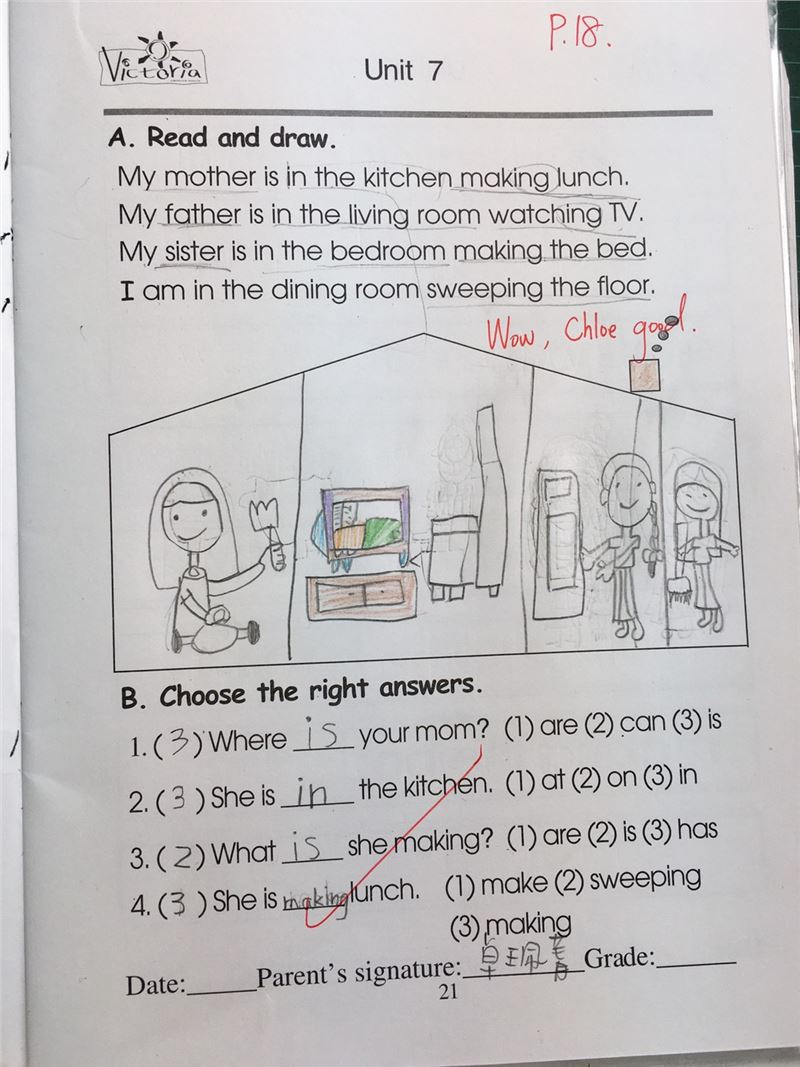 P.18.
Victoria
Unit 7
A. Read and draw.
My mother is in the kitchen making lunch.
My father is in the living room watching TV.
My sister is in the bedroom making the bed.
I am in the dining room sweeping the floor.
Wow, Chloe good.
B. Choose the right answers.
1. (3) Where is your mom? (1) are (2) can (3) is
2. (3) She is in the kitchen. (1) at (2) on (3) in
3. (2) What is she making? (1) are (2) is (3) has
4. (3) She is making lunch. (1) make (2) sweeping
(3) making
Date:_____Parent's signature:________Grade:_____
21